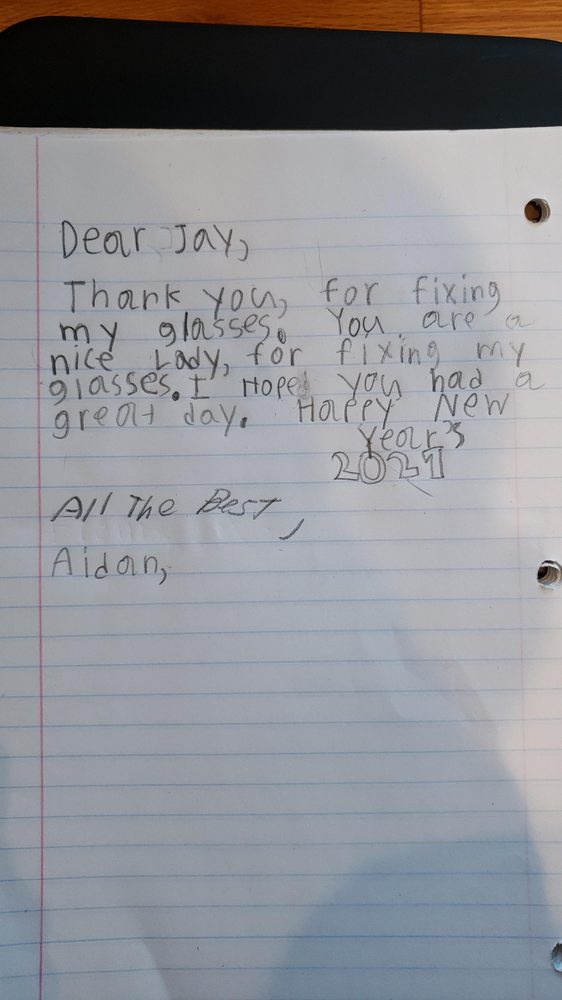 Dear Jay,
Thank you, for fixing
my glasses. You are a
nice Lady, for fixing my
glasses. I Hope you had a
great day. Happy New
Year's
2021
All The Best,
Aidan,